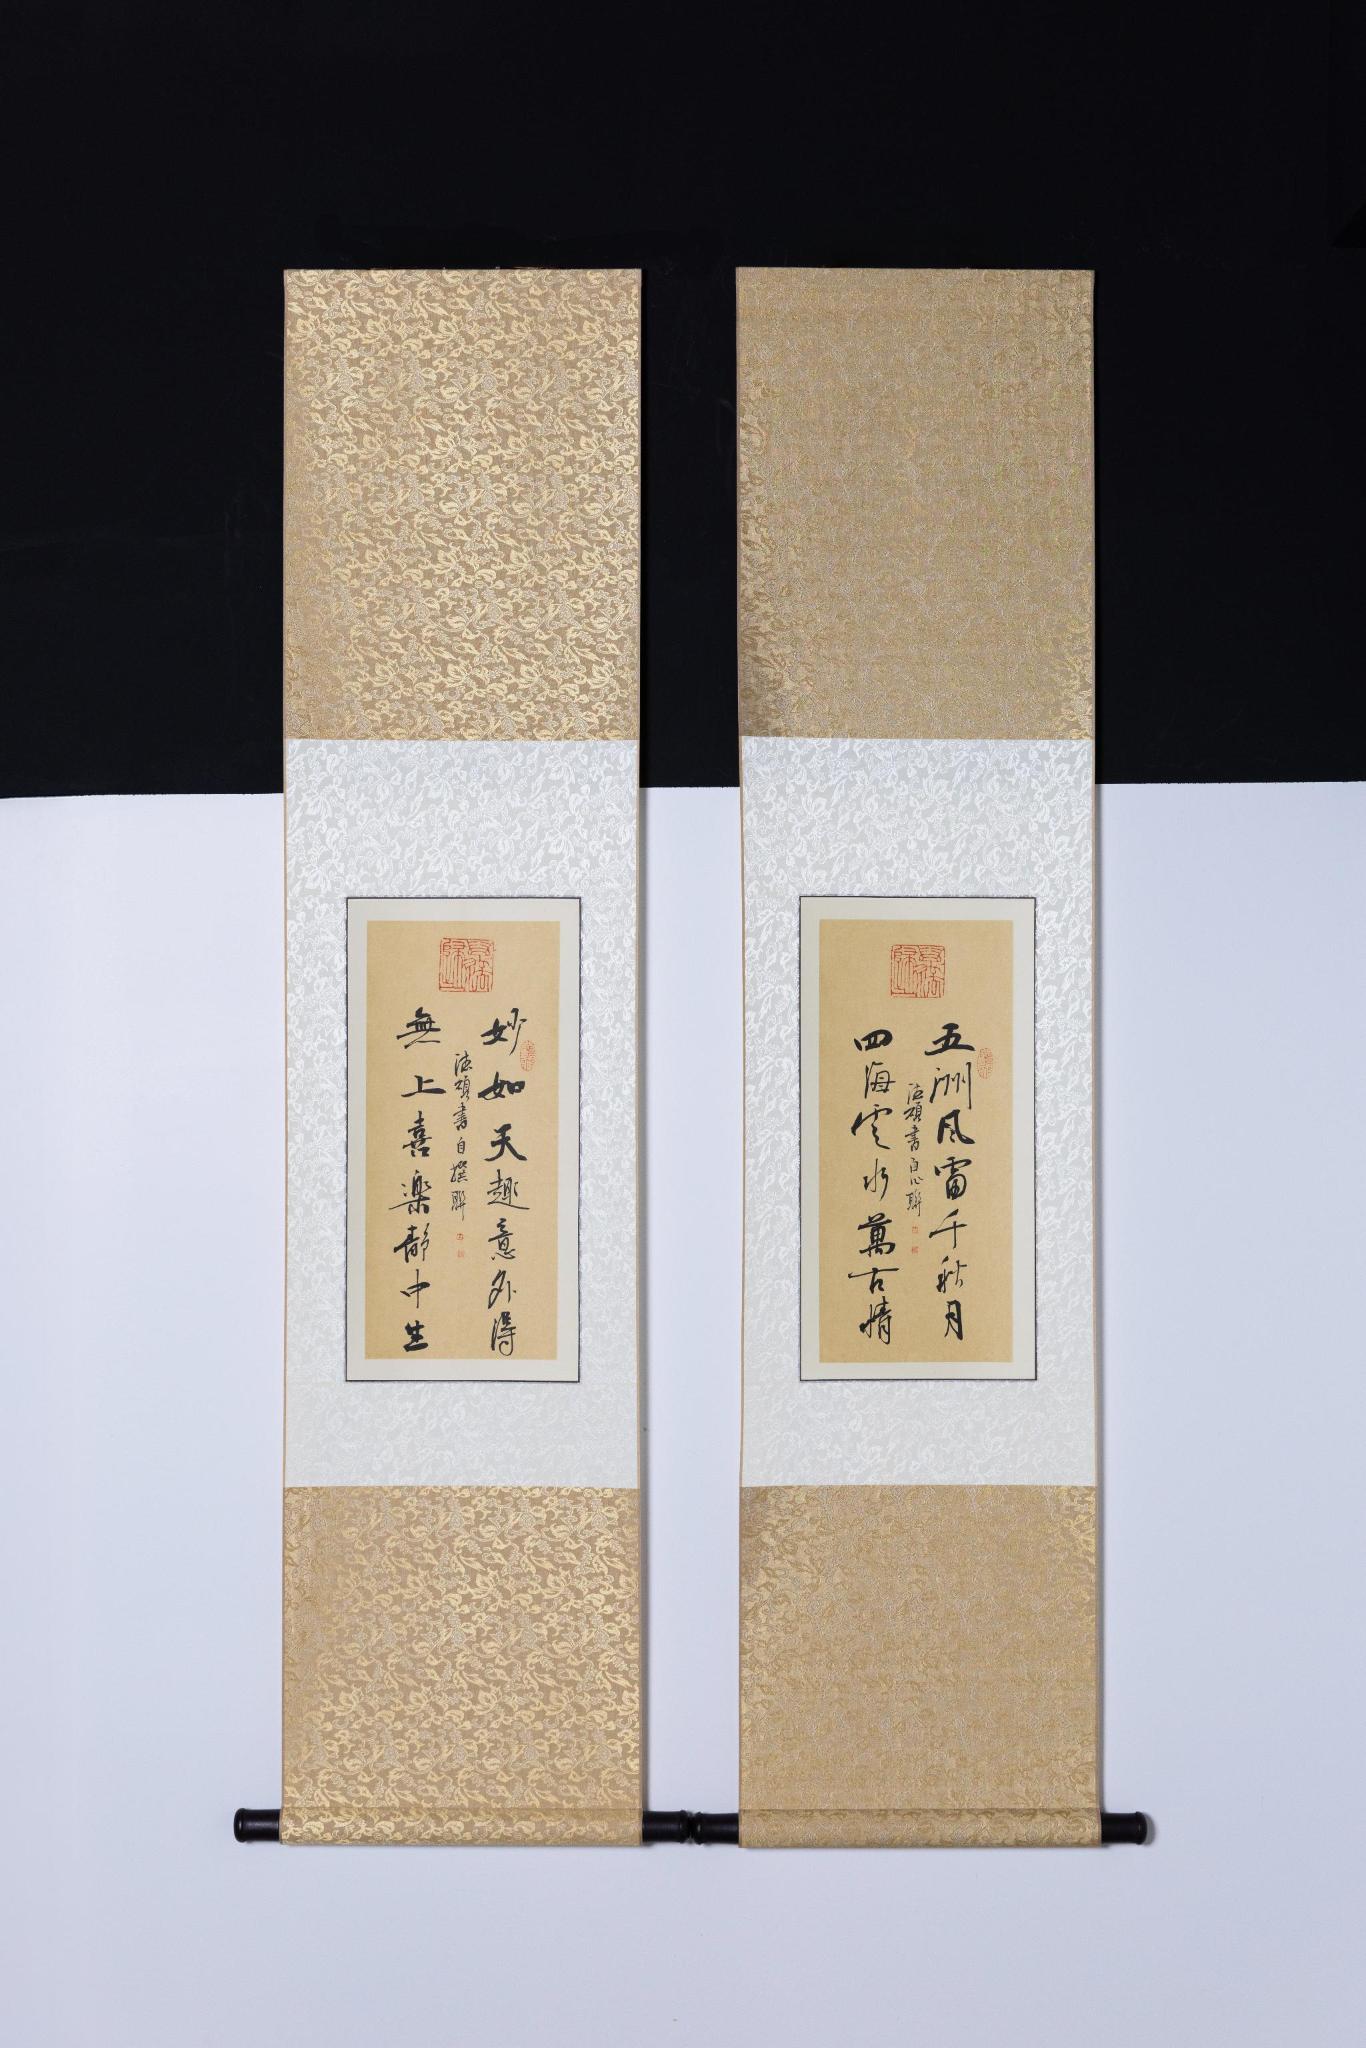 五洲风雷千秋月
四海雲水萬古情
德頑書自心聯
妙如天趣意外得
無上喜楽靜中生
德頑書自撰聯